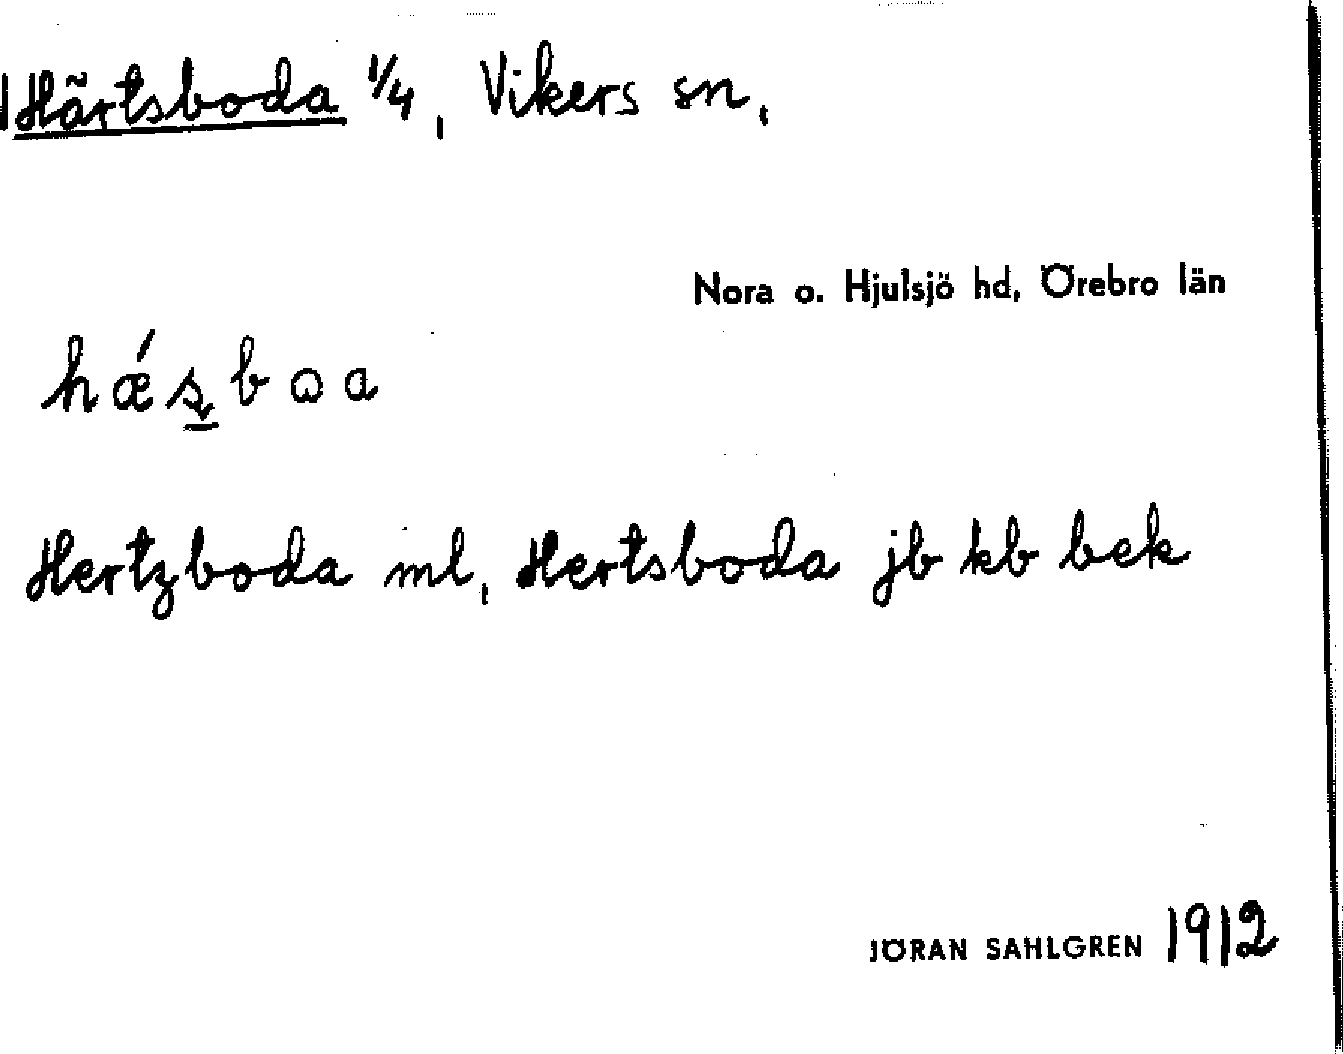 Härtsboda 1/4, Vikers sn,
Nora o. Hjulsjö hd, Örebro län
hǽs̬̱bɷa
Hertzboda ml, Hertsboda jb kb bek
JÖRAN SAHLGREN 1912